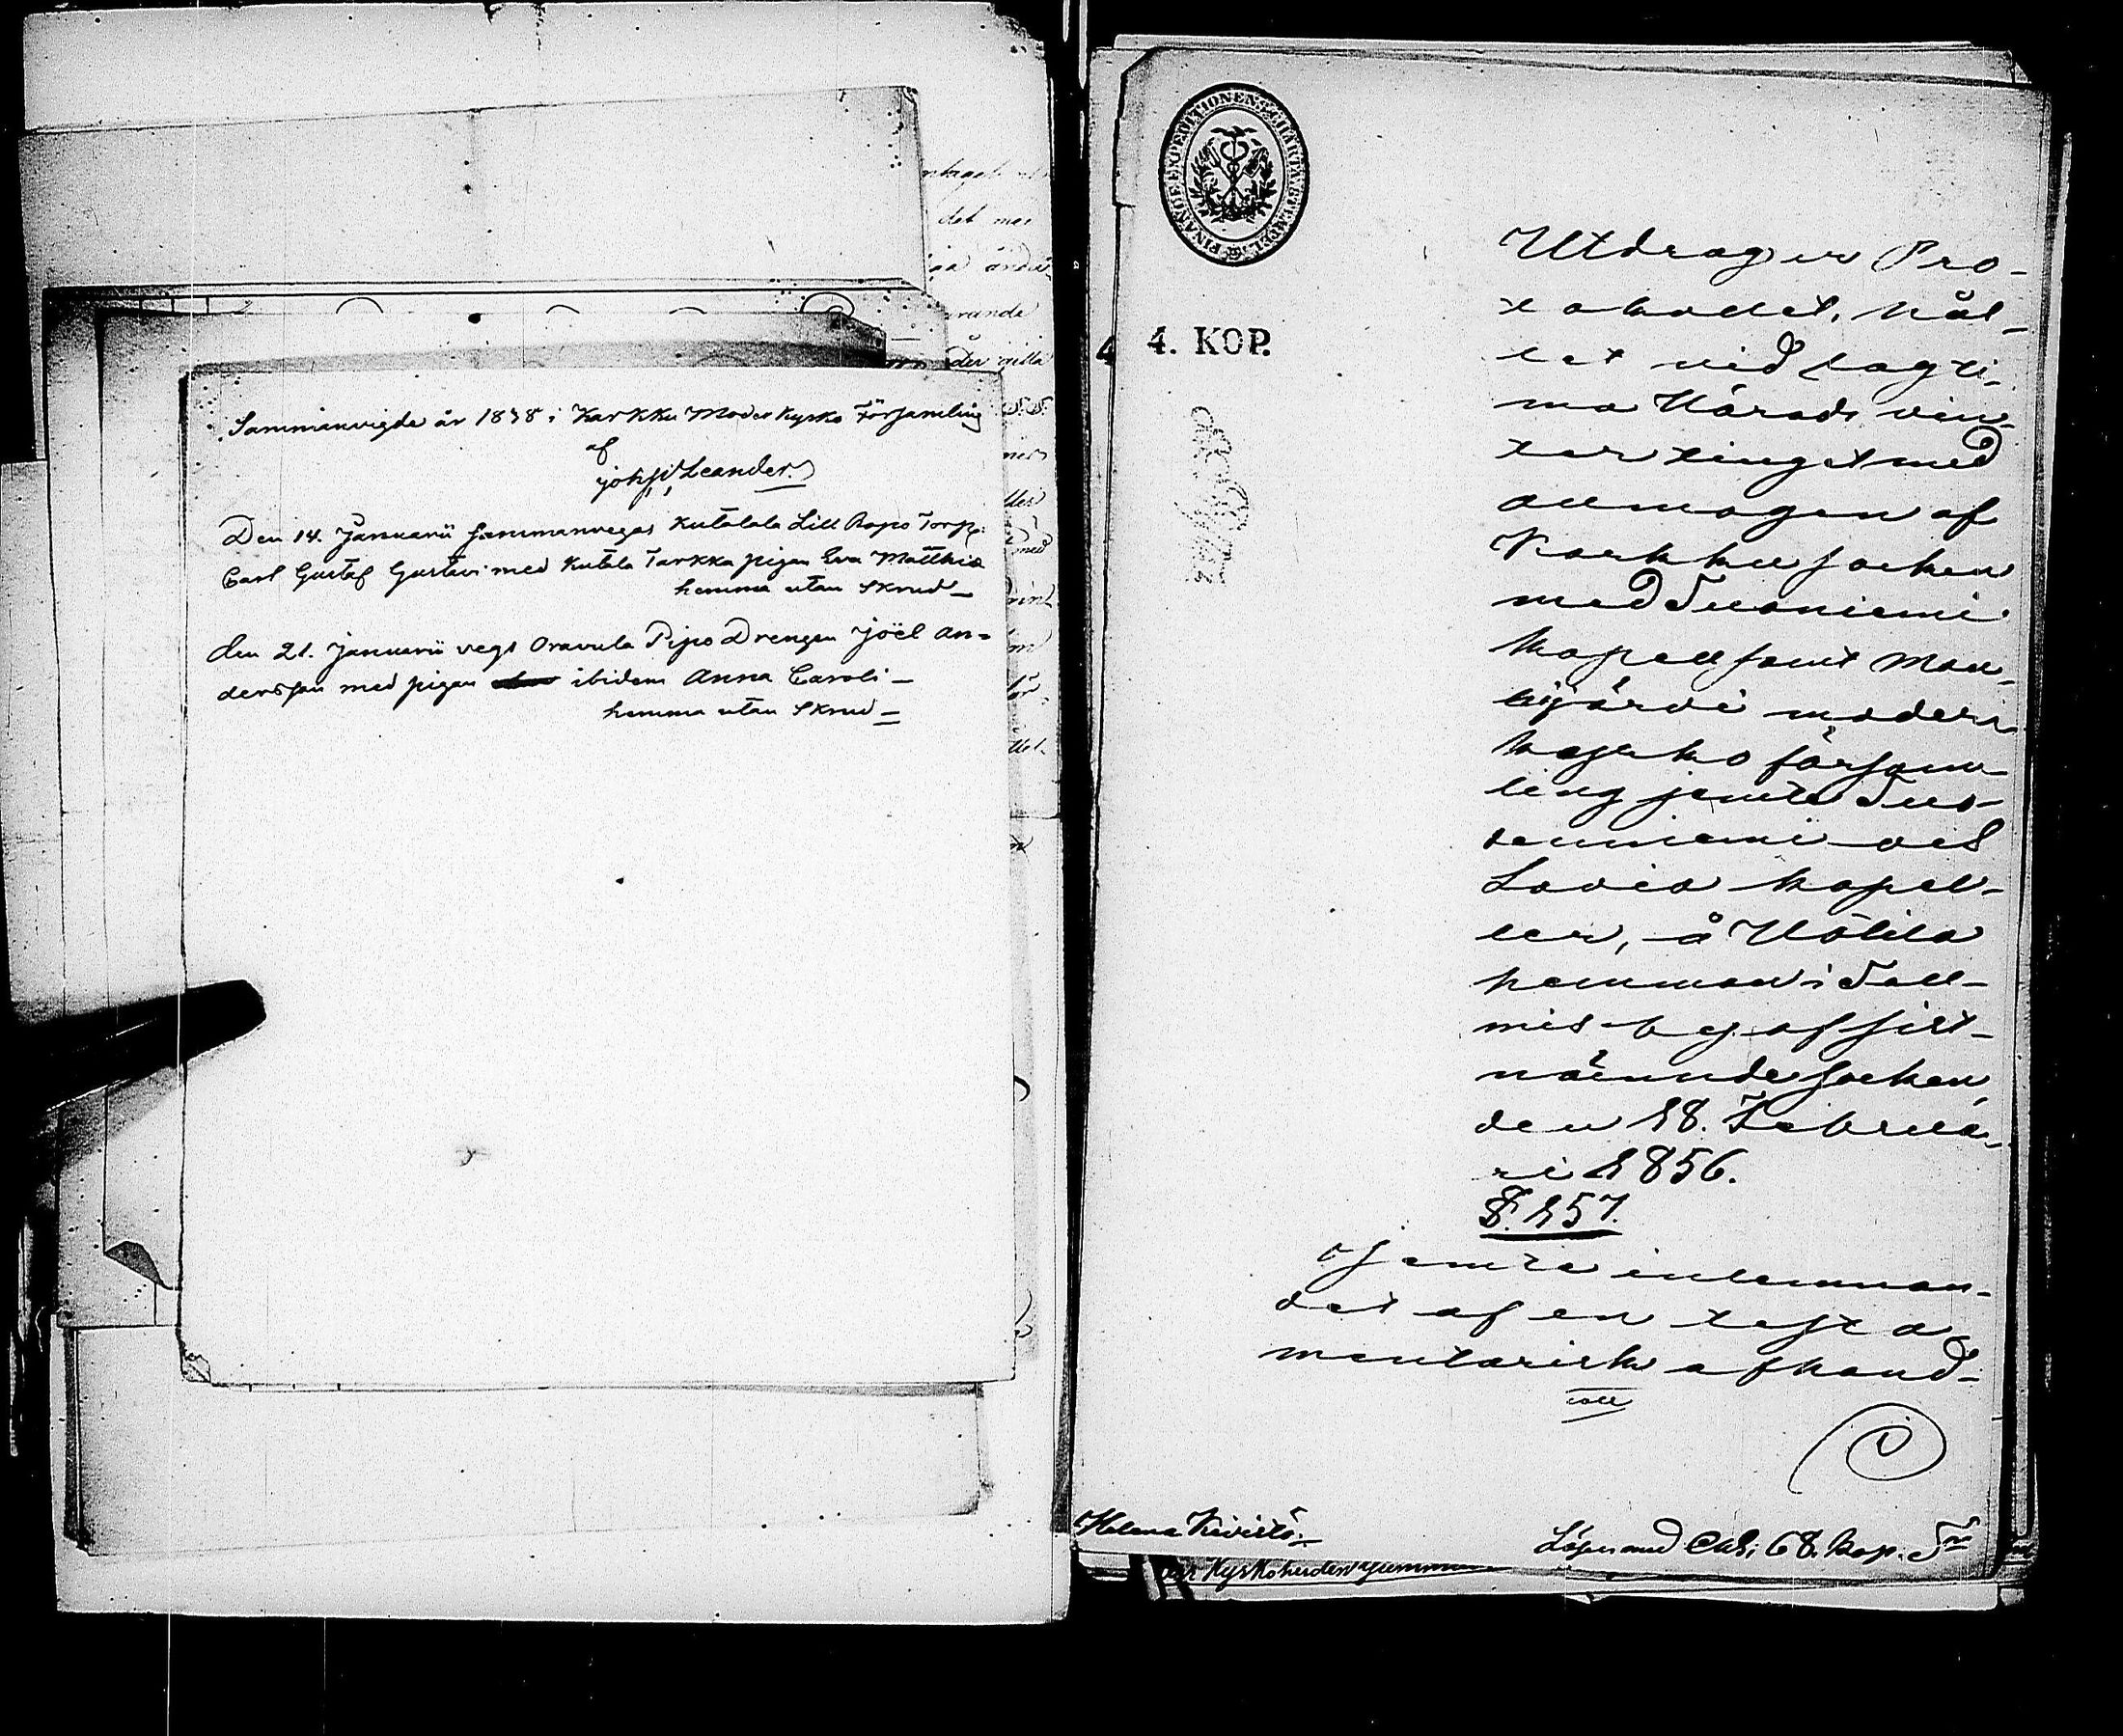 Sammanvigde år 1838 i Karkku Moder Kyrko Församling
af
joh: Leander.
Den 14. Januarii sammanvegas Kutalala Lill Ropo Torp:
Carl Gustaf Gustavi med Kutala Tarkka pigan Eva Matthiæ
hemma utan Skrud_
den 21. Januarii vegs Oravula Pipo Drengen Joël An=
dersson med pigan ibidem Anna Caroli_
hemma utan Skrud_
det mer
rande
FINANCE EXPEDITIONENS CHARTÆ STEMPEL
4. KOP.
Utdrag ur Pro-
tokollet, hål-
let vid lagti-
ma Härads vin-
tertinget med
allmogen af
Karkku socken
med Suoniemi
kapell samt Mou-
hijärvi moder-
kyrko försam-
ling jemte Suo-
denniemi och
Lavia kapel-
ler, å Uotila
hemman i Sall-
mis by af sist-
nämnde socken
den 18. Februa-
ri 1856.
§. 157.
Jemte inlemnan-
det af en testa-
mentarisk afhand-
coll
Helena Kivistö.
Lösen med Ch: 68. kop. Sr
Kyrkoherden